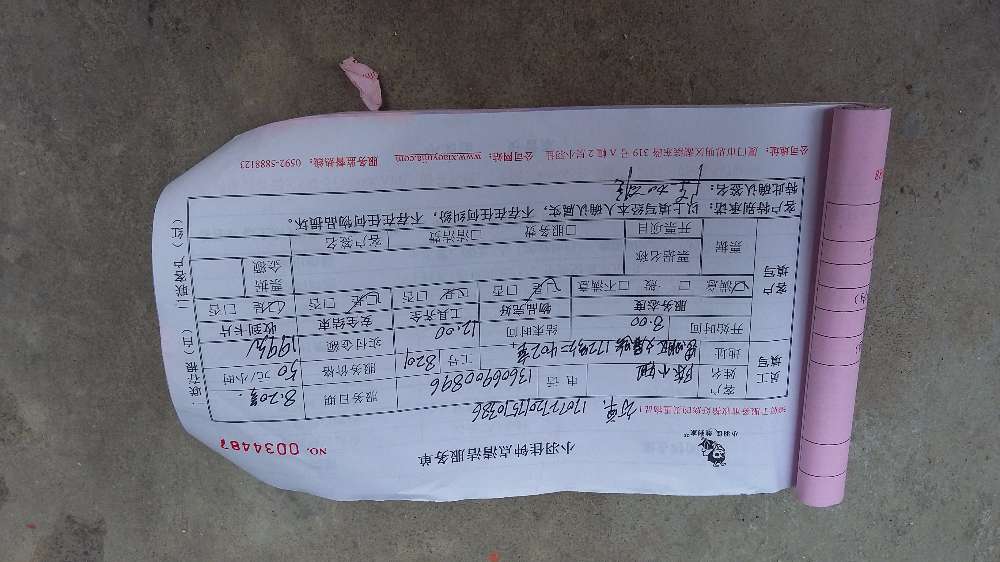 小羽佳 懒到家
小羽佳钟点清洁服务单
NO. 0034487
1207272017510336
员工填写
客户姓名
陈小姐
电话
13606900896
服务日期
8.20
地址
172号
402室
工号
820
服务价格
50
元/小时
开始时间
8:00
结束时间
12:00
实付金额
199元
客户填写
服务态度
物品完好
工具齐全
安全结束
收到卡片
☑满意 □一般 □不满意
☑是 □否
☑是 □否
☑是 □否
☑是 □否
票据
票据名称
票据金额
开票项目
□服务费 □清洁费
客户签名
客户特别承诺:以上填写经本人确认属实,不存在任何纠纷,不存在任何物品损坏。
特此确认签名:
公司地址:厦门市思明区
319号A幢2层小羽佳 公司网站:www.xiaoyujia.com 服务监督热线:0592-5888123
一联存根(白) 二联客户(红)